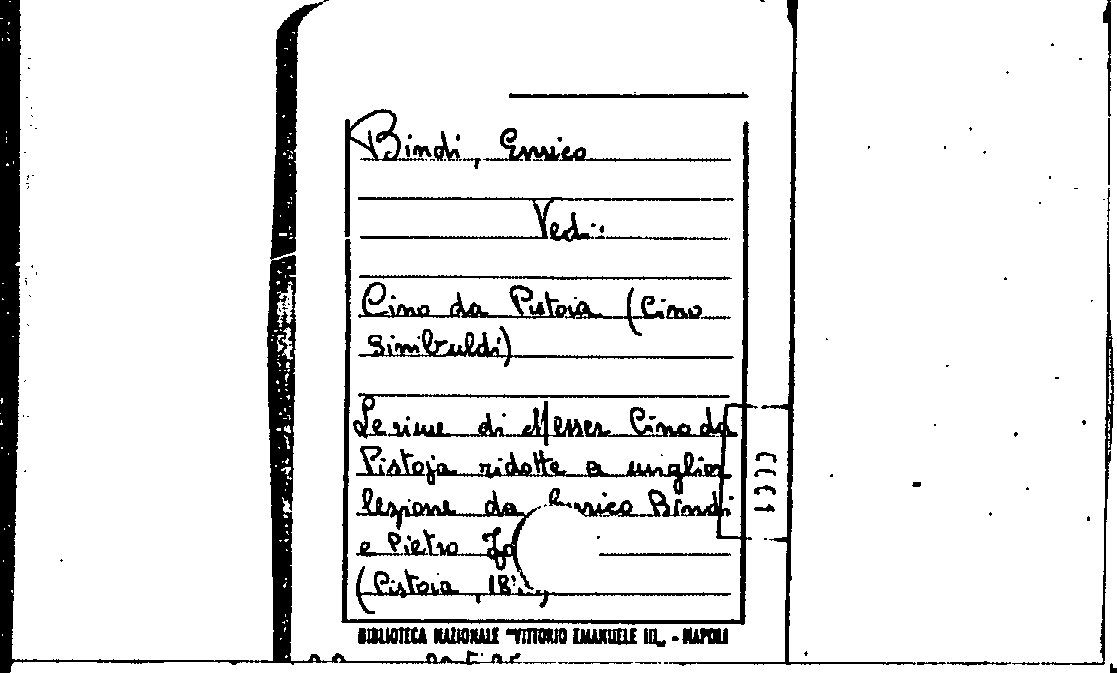 Bindi, Enrico
Vedi:
Cino da Pistoia (Cino
Sinibuldi)
Le rime di Messer Cino da
Pistoja ridotte a miglior
lezione da Enrico Bindi
e Pietro
(Pistoia,
BIBLIOTECA NAZIONALE "VITTORIO EMANUELE III„ - NAPOLI